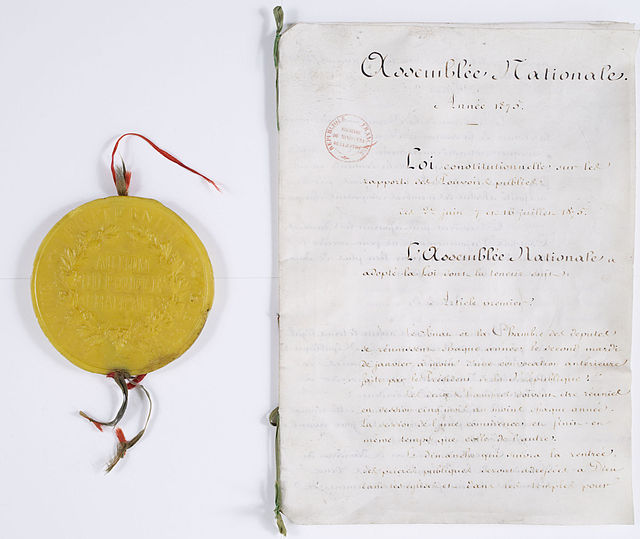 Assemblée Nationale.
Année 1875.
RÉPUBLIQUE FRANÇAISE
Loi constitutionnelle sur les
rapports des Pouvoirs publics.
des 22 juin 7 et 16 juillet 1875.
L'Assemblée Nationale a
adopté la Loi dont la teneur suit:
Article premier.
Le Sénat et la Chambre des députés
se réunissent chaque année, le second mardi
de janvier, à moins d'une convocation antérieure
faite par le Président de la République.
Les deux Chambres doivent être réunies
en session cinq mois au moins chaque année.
La session de l'une commence et finit en
même temps que celle de l'autre.
Le dimanche qui suivra la rentrée
des prières publiques seront adressées à Dieu
dans les églises et dans les temples pour